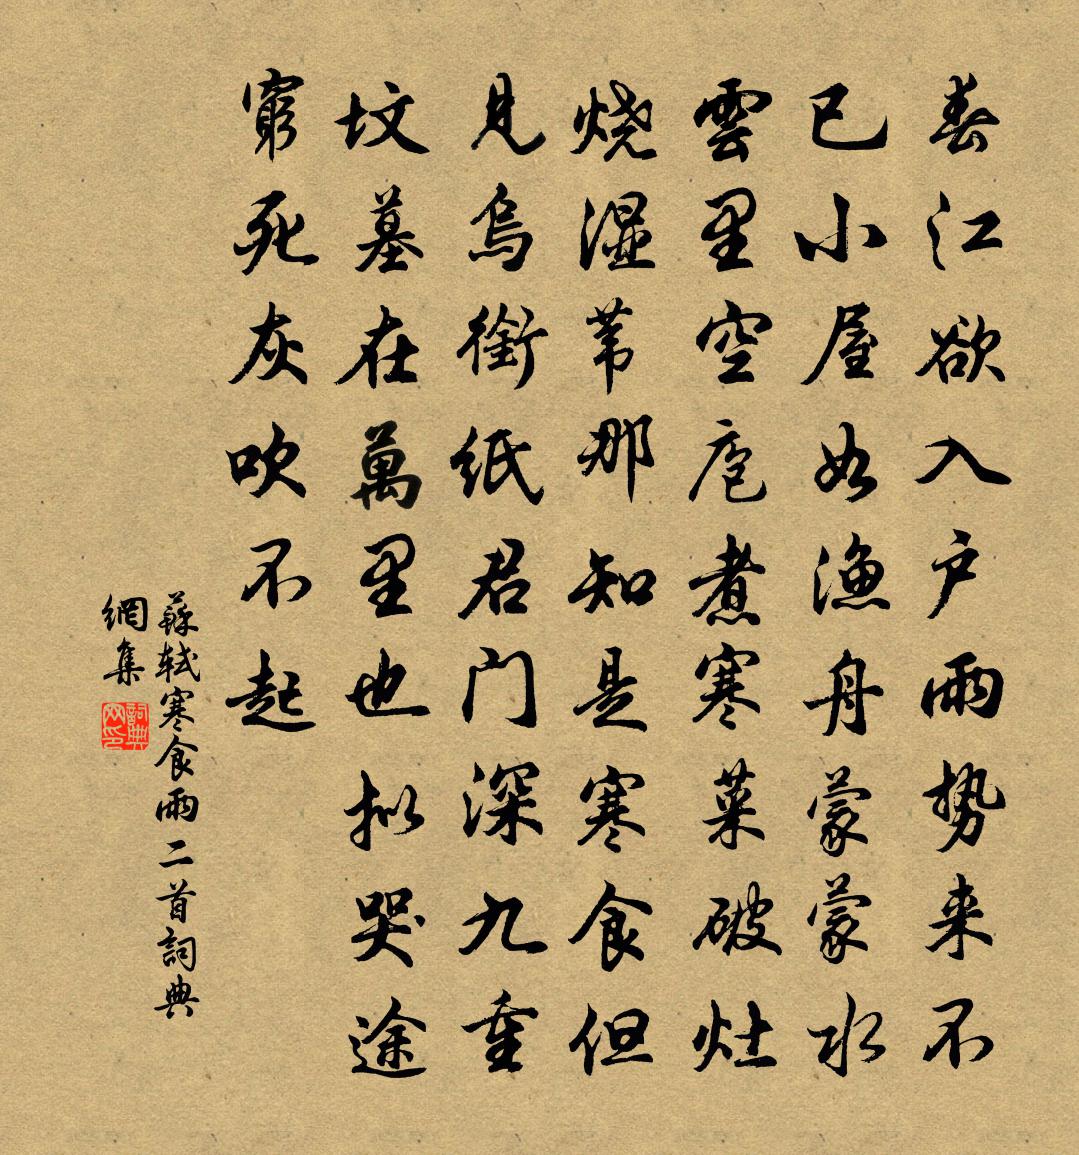 春江欲入户雨势来不
已小屋如漁舟蒙蒙水
雲里空庖煮寒菜破灶
烧湿苇那知是寒食但
見烏銜紙君门深九重
坟墓在萬里也拟哭途
窮死灰吹不起
蘇軾寒食雨二首詞典
網集
詞典网印